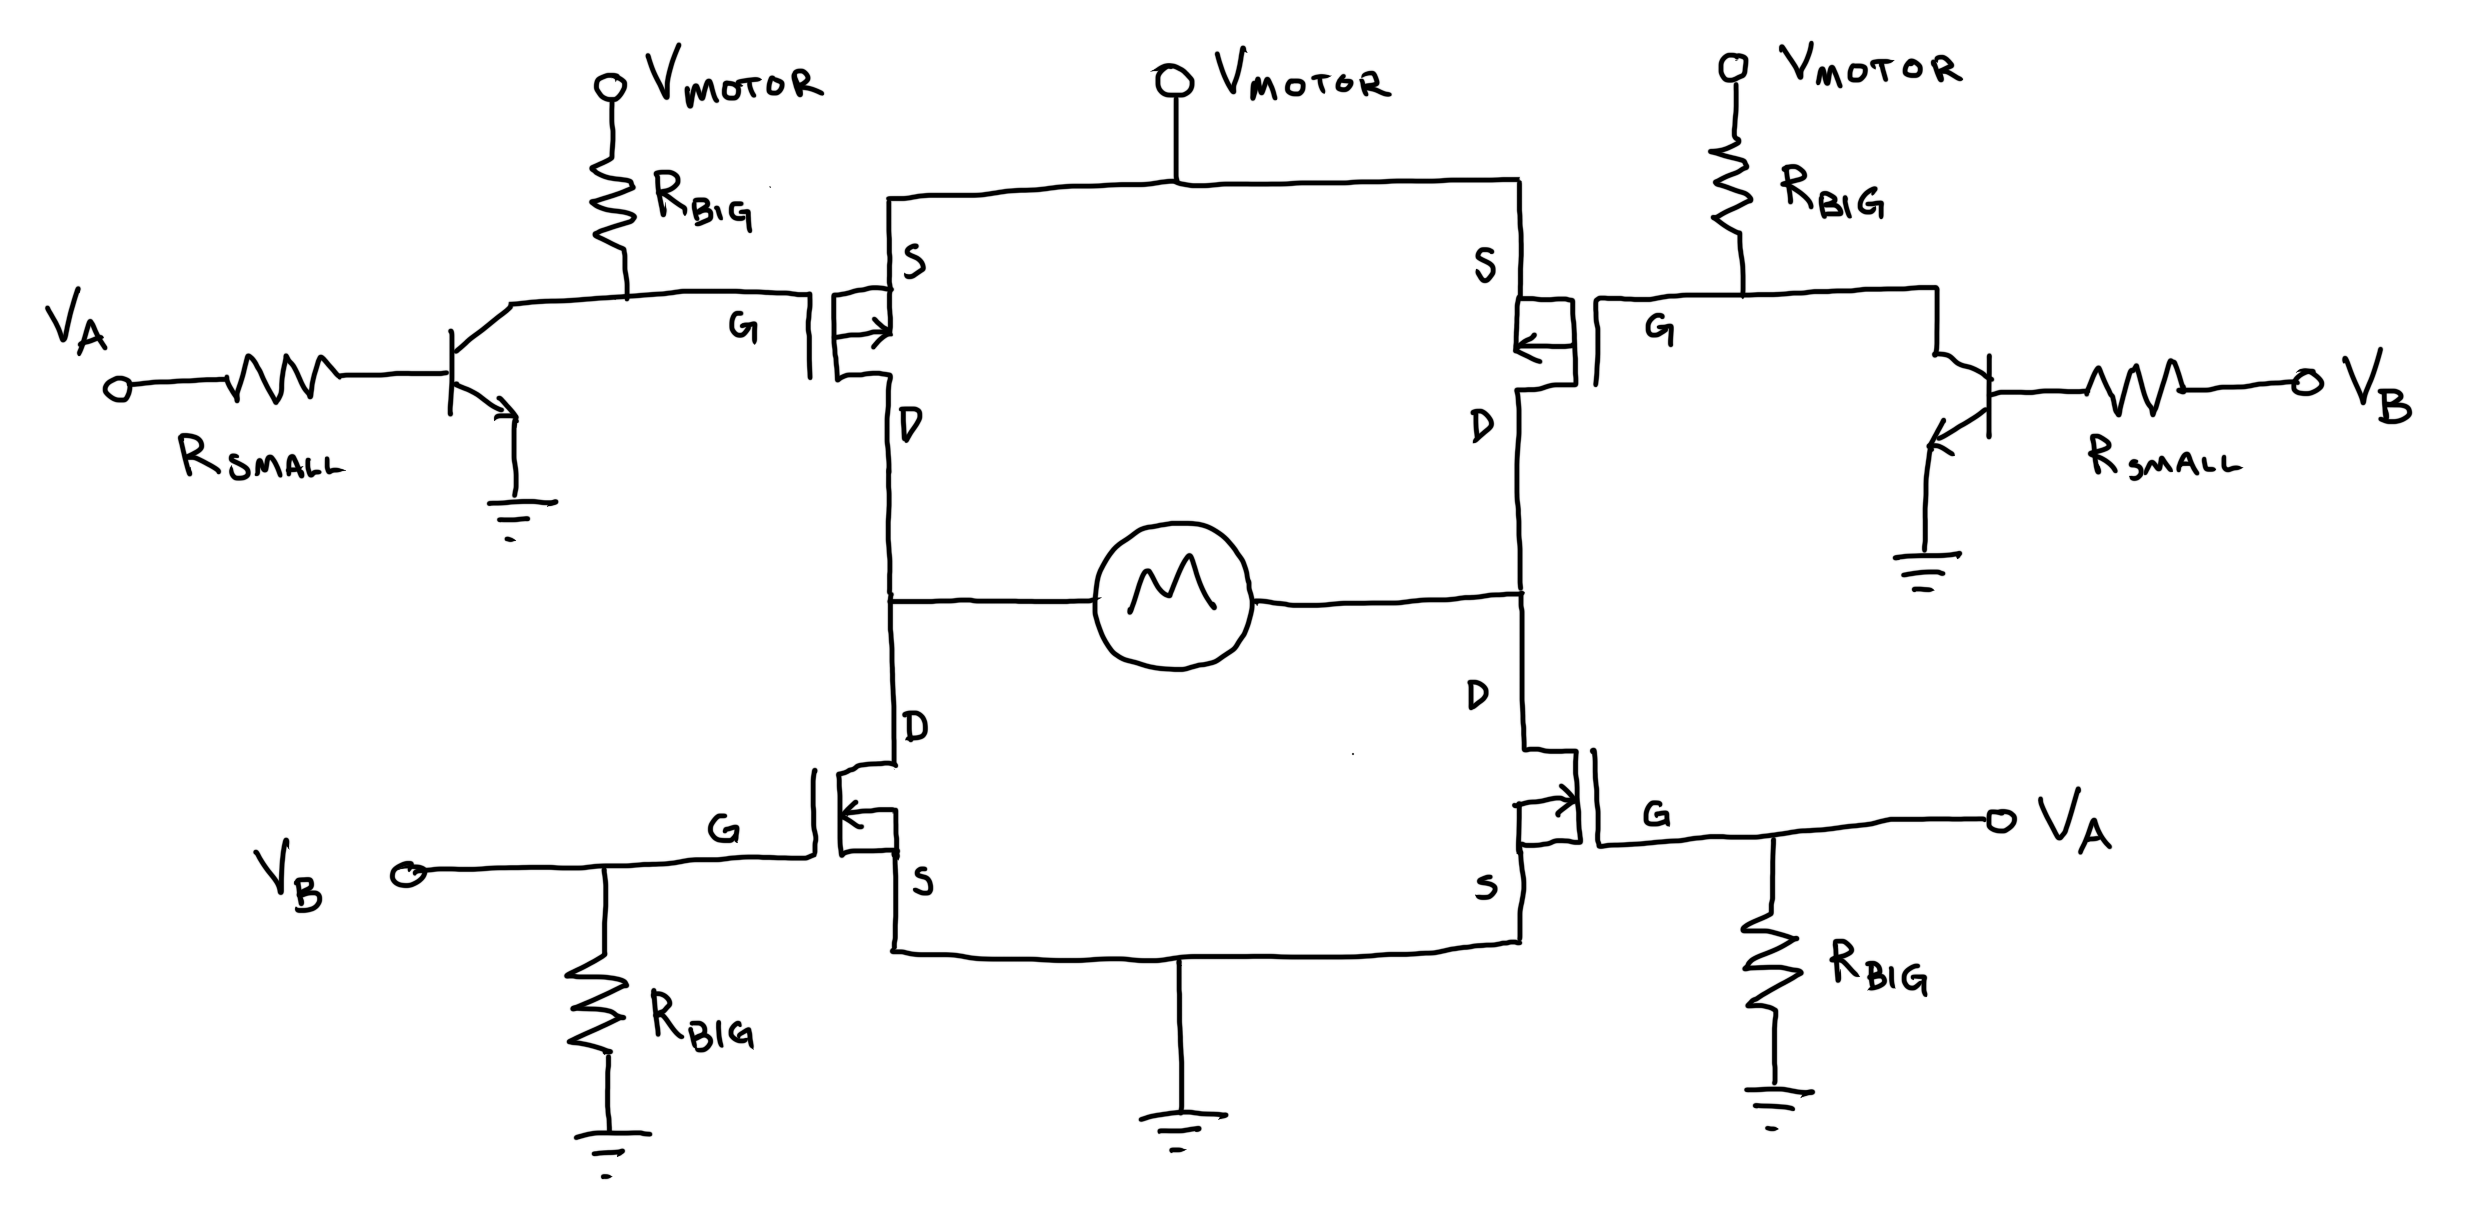 VMOTOR
VMOTOR
VMOTOR
RBIG
RBIG
S
S
VA
G
G
VB
D
D
RSMALL
RSMALL
M
D
D
G
G
VA
VB
S
S
RBIG
RBIG